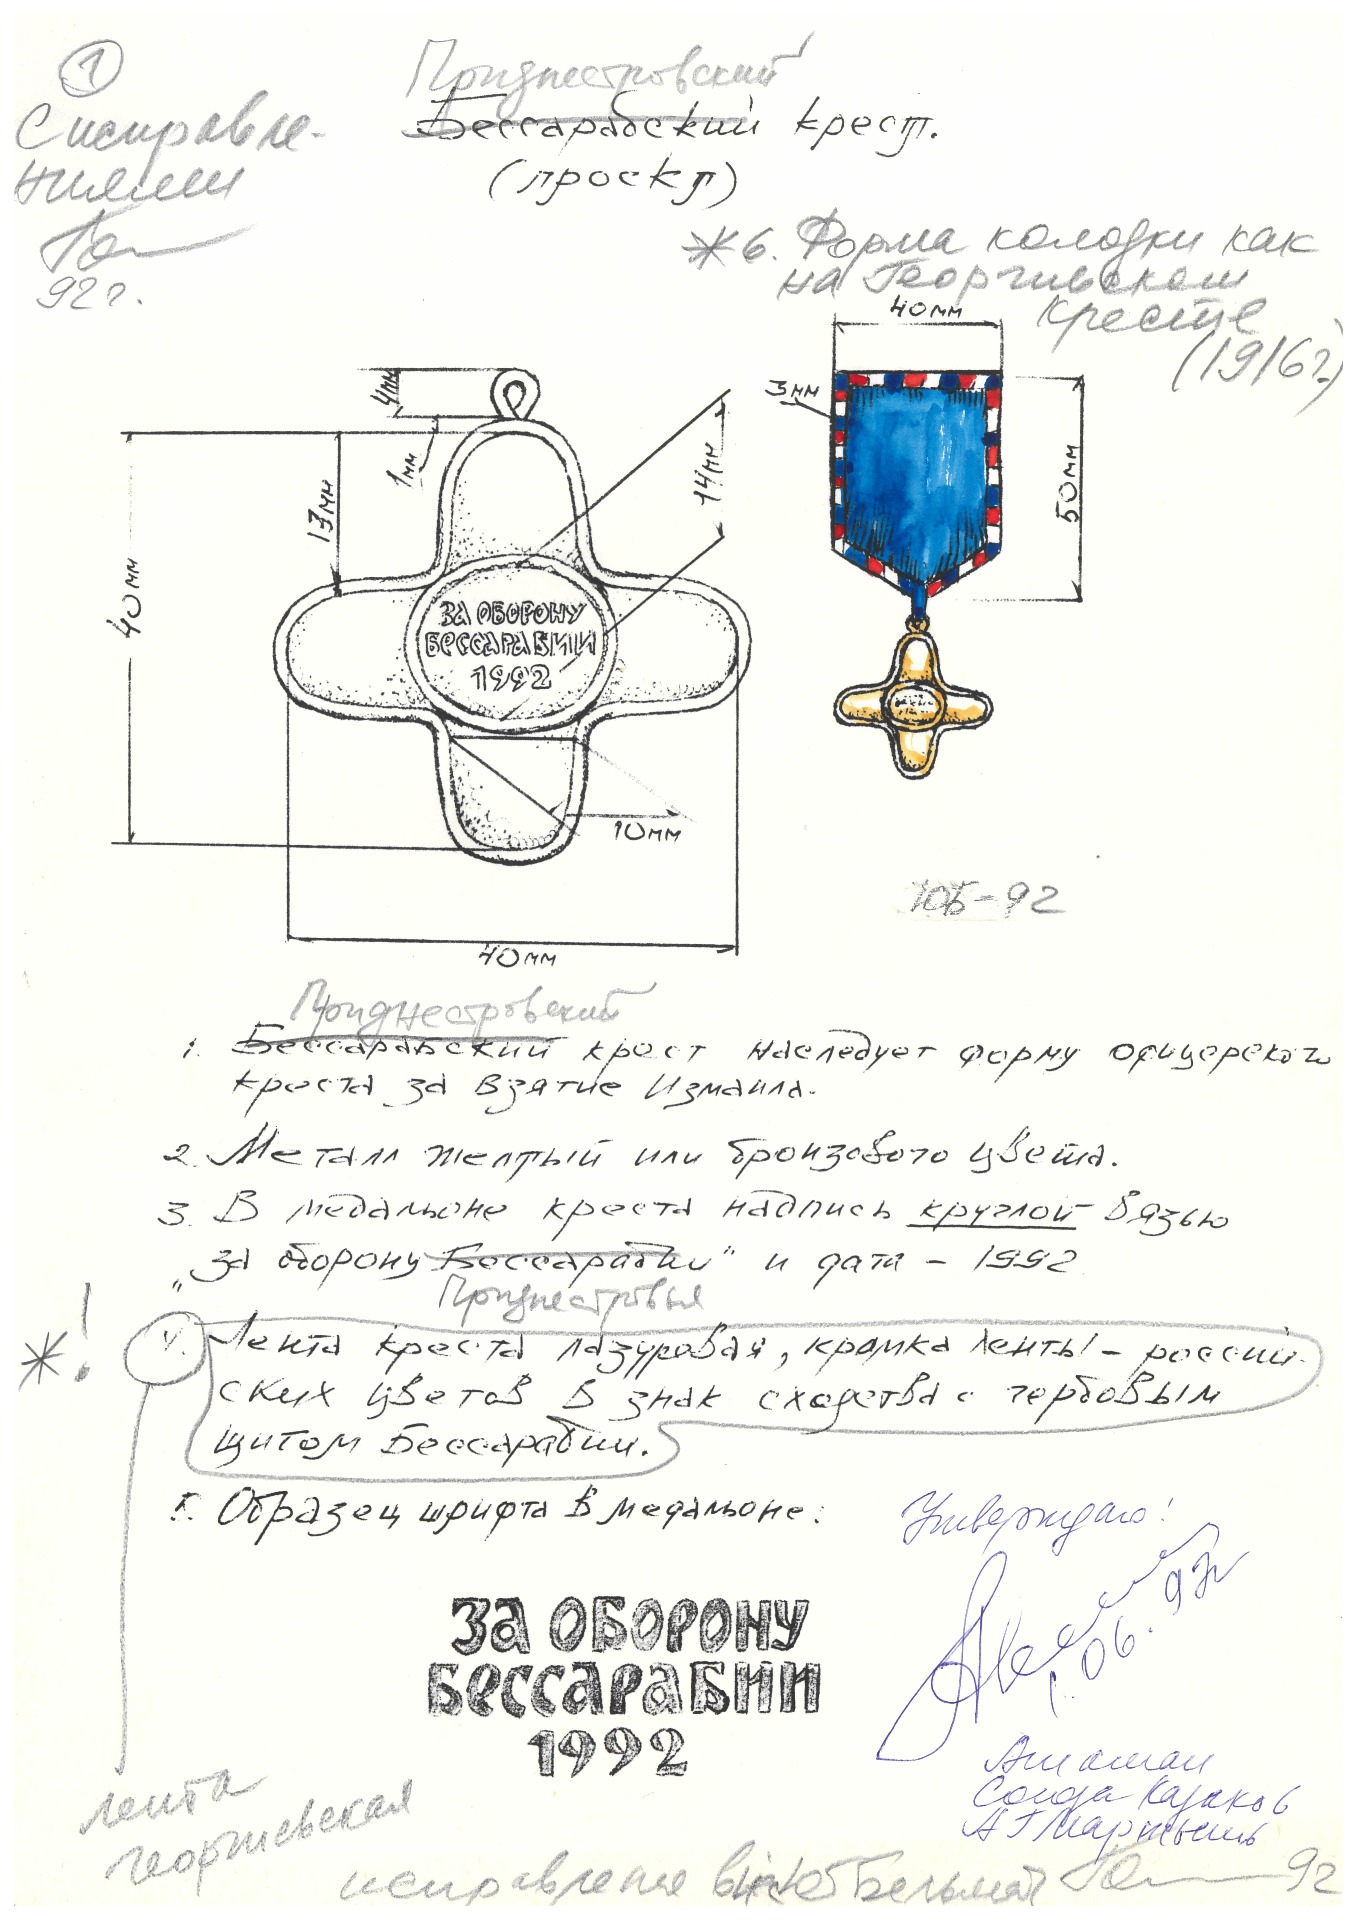 1
С исправле-
ниями
92 г.
Приднестровский
Бессарабский крест.
(проект)
*6. Форма колодки как
на Георгиевском
кресте
(1916г.)
40мм
3мм
50мм
4мм
1мм
13мм
14мм
40мм
ЗА ОБОРОНУ
БЕССАРАБИИ
1992
10мм
40мм
ЮБ-92
Приднестровский
1. Бессарабский крест наследует форму офицерского
креста за взятие Измаила.
2. Металл желтый или бронзового цвета.
3. В медальоне креста надпись круглой вязью
„за оборону Бессарабии" и дата - 1992
Приднестровья
*!
4. Лента креста лазуровая, кромка ленты - россий-
ских цветов в знак сходства с гербовым
щитом Бессарабии.
5. Образец шрифта в медальоне:
ЗА ОБОРОНУ
БЕССАРАБИИ
1992
Утверждаю!
1.06.92г
Атаман
Союза казаков
А Г Мартынов
лента
георгиевская
исправления
92